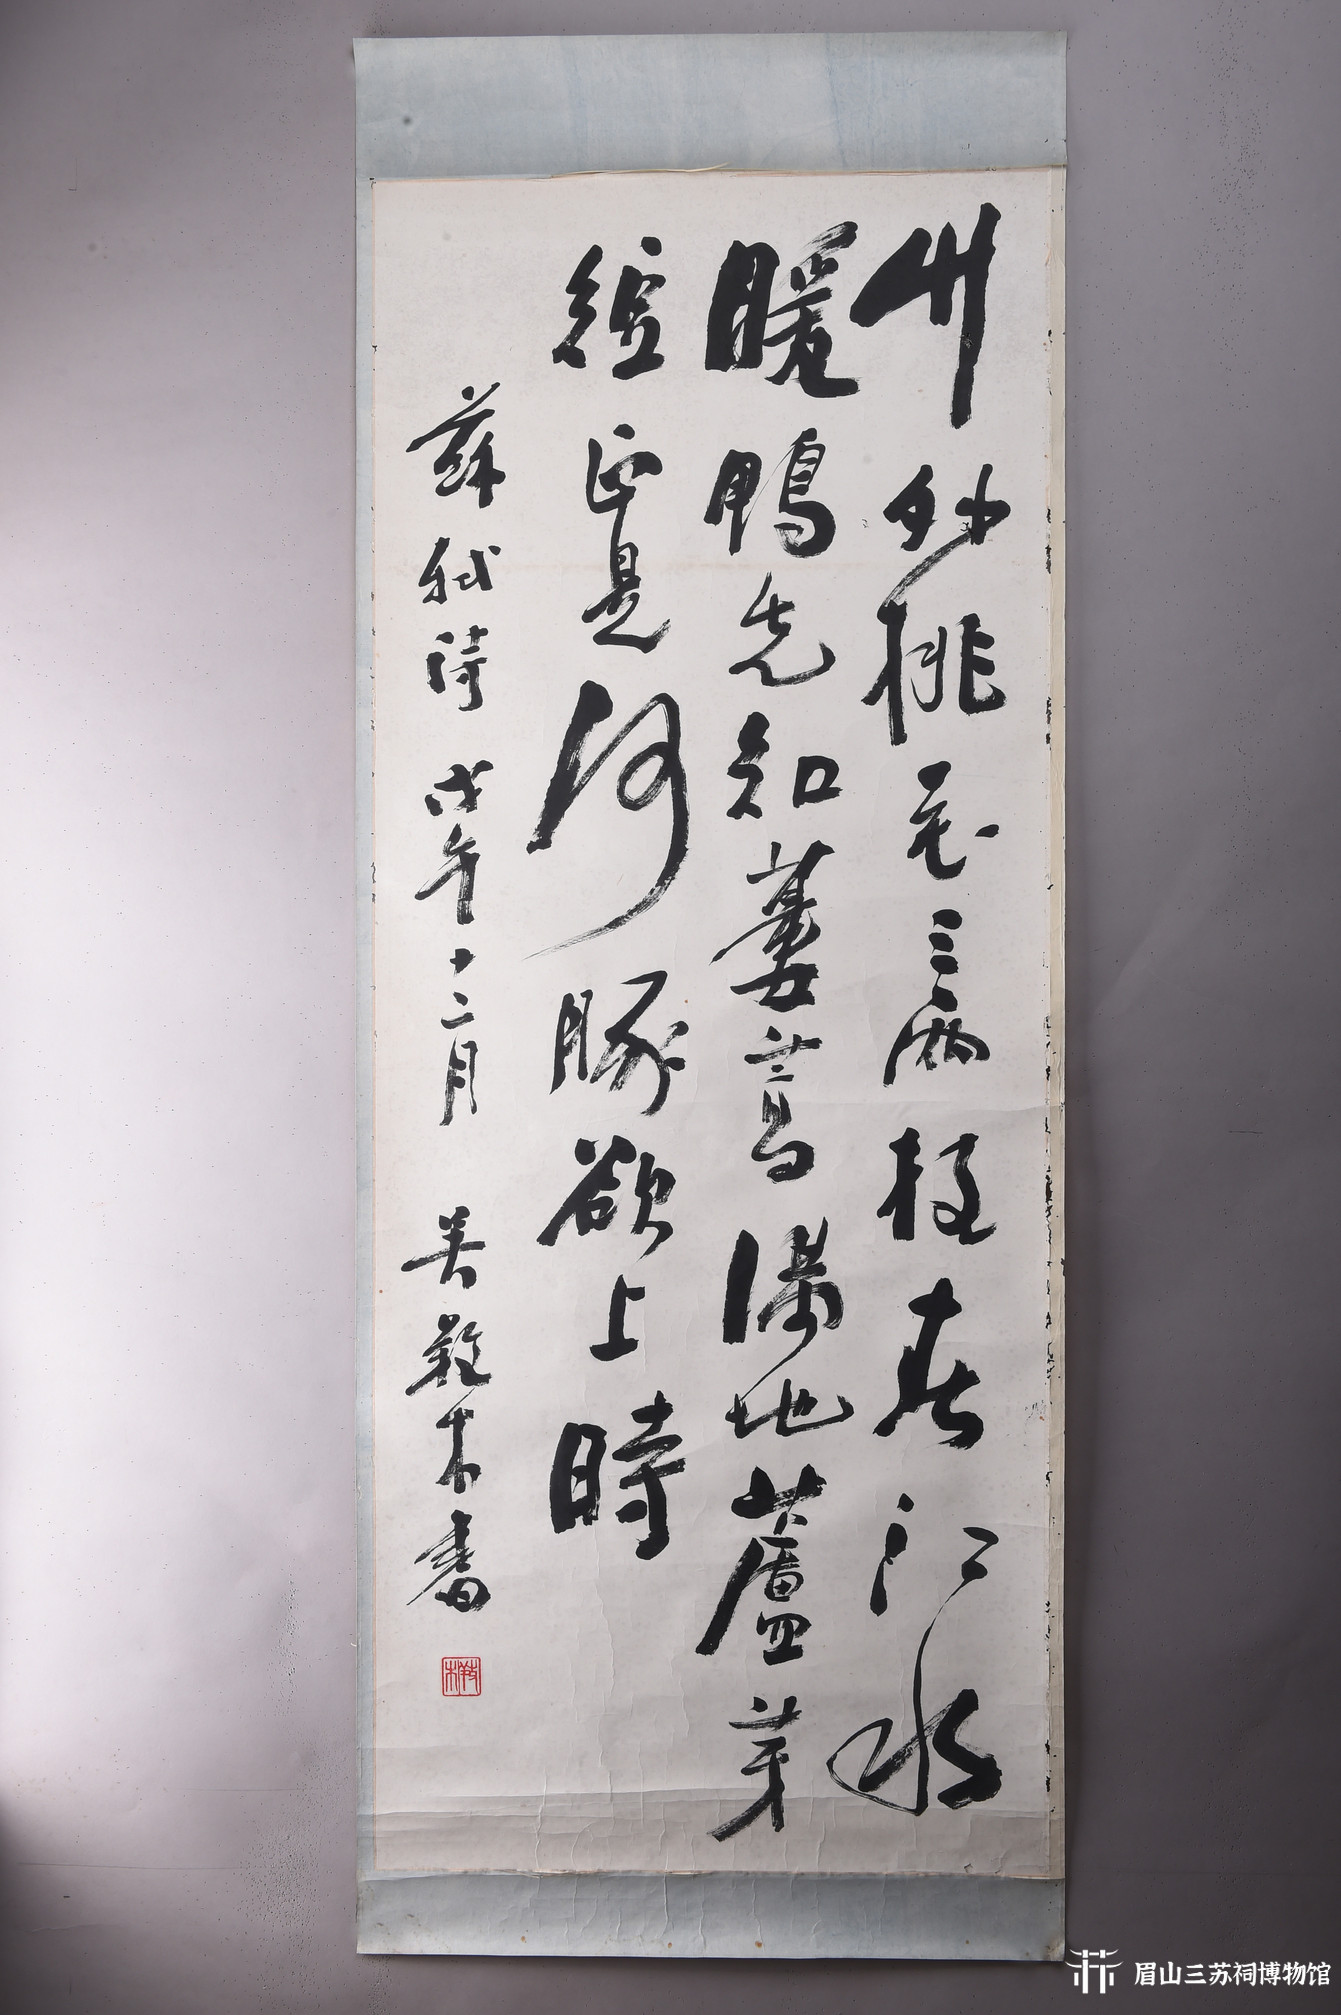 竹外桃花三兩枝春江水
暖鴨先知蔞蒿滿地蘆芽
短正是河豚欲上時
蘇軾詩 戊午十二月 吴敔木書
敔木
眉山三苏祠博物馆